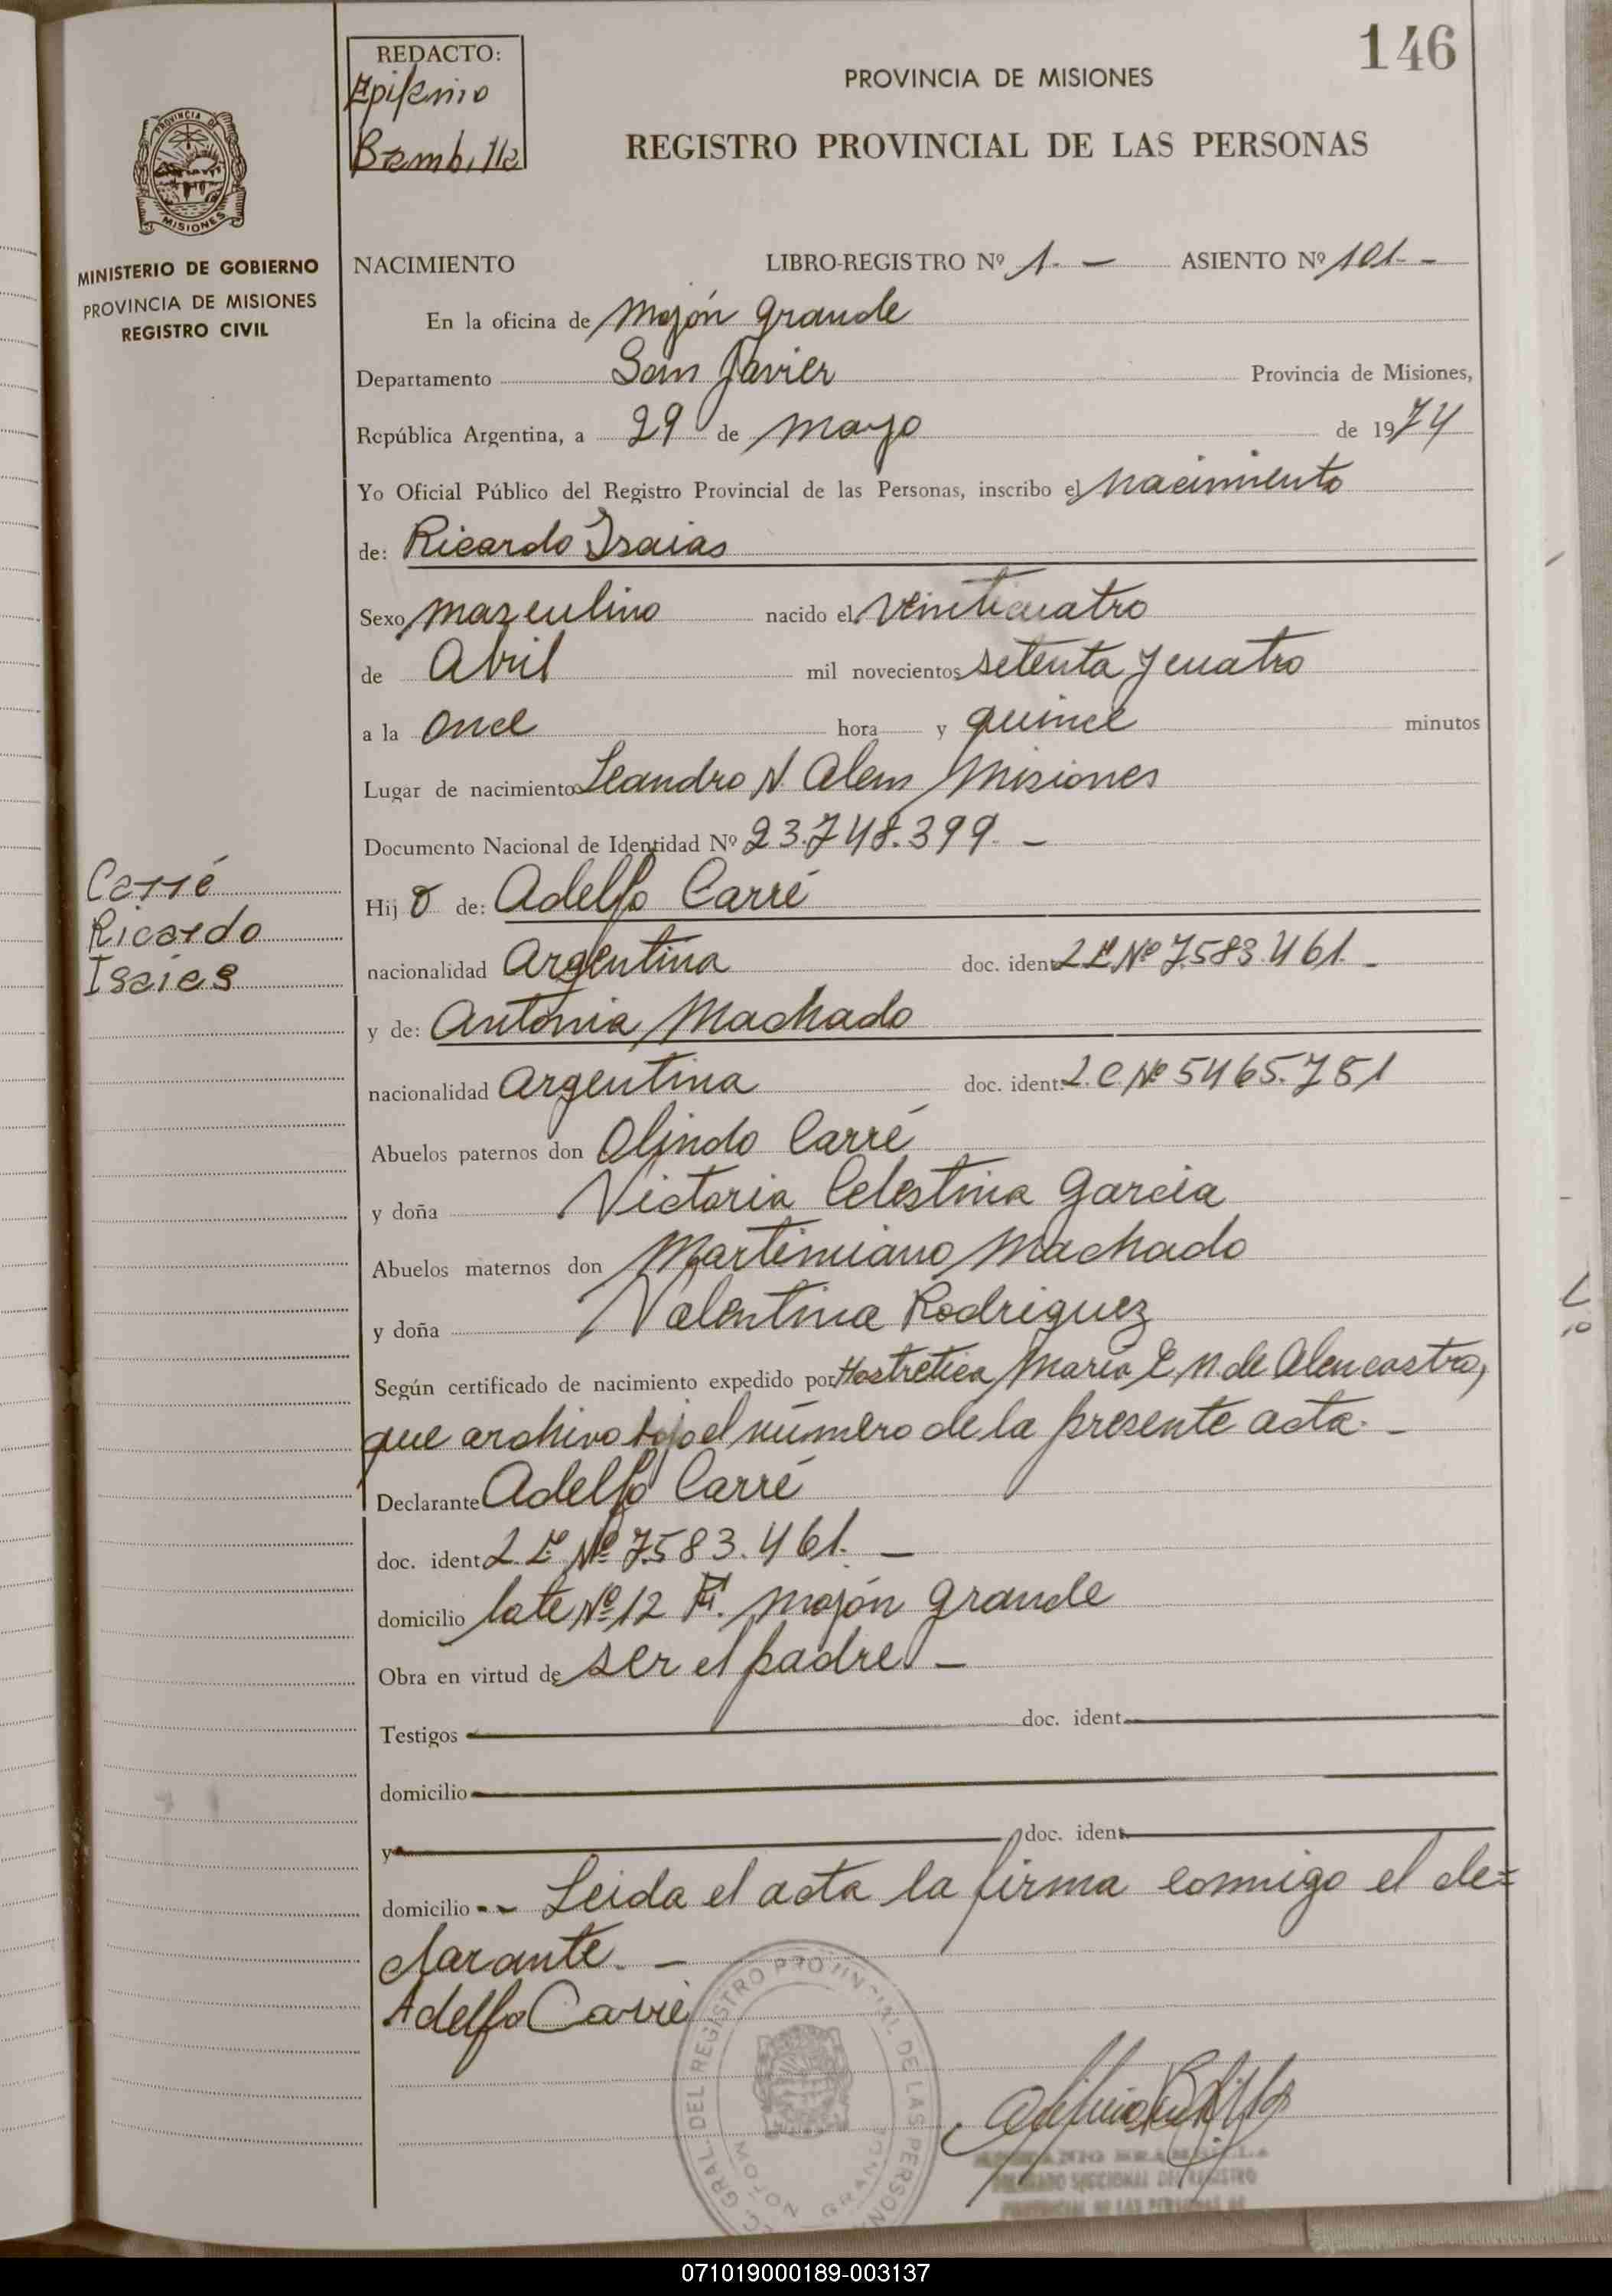 146
REDACTO:
Epifanio
Brambilla
PROVINCIA DE MISIONES
REGISTRO PROVINCIAL DE LAS PERSONAS
PROVINCIA DE
MISIONES
MINISTERIO DE GOBIERNO
PROVINCIA DE MISIONES
REGISTRO CIVIL
NACIMIENTO LIBRO-REGISTRO Nº 1.- ASIENTO Nº 101.-
En la oficina de Mojón grande
Departamento San Javier Provincia de Misiones,
República Argentina, a 29 de mayo de 1974
Yo Oficial Público del Registro Provincial de las Personas, inscribo el nacimiento
de: Ricardo Isaias
Sexo masculino nacido el veinticuatro
de Abril mil novecientos setenta y cuatro
a la once hora y quince minutos
Lugar de nacimiento Leandro N. Alem Misiones
Documento Nacional de Identidad Nº 23.748.399.-
Carré
Ricardo
Isaias
Hijo de: Adelfo Carré
nacionalidad Argentina doc. ident L.E Nº 7.583.461.-
y de: Antonia Machado
nacionalidad argentina doc. ident: L.C. Nº 5465.781
Abuelos paternos don Olindo Carré
y doña Victoria Celestina Garcia
Abuelos maternos don Martimiano Machado
y doña Valentina Rodriguez
Según certificado de nacimiento expedido por María E. N. de Alencastro,
que archivo bajo el número de la presente acta.-
Declarante Adelfo Carré
doc. ident L.E. Nº 7.583.461.-
domicilio lote Nº 12 Mojón grande
Obra en virtud de ser el padre.-
Testigos doc. ident.
domicilio
y doc. ident.
domicilio -- Leida el acta la firma conmigo el de=
clarante.-
Adelfo Carré
GRAL. DEL REGISTRO PROVINCIAL DE LAS PERSON
MOJON GRANDE
BRAMBILLA
SECCIONAL DEL REGISTRO
PROVINCIAL DE LAS PERSONAS
071019000189-003137